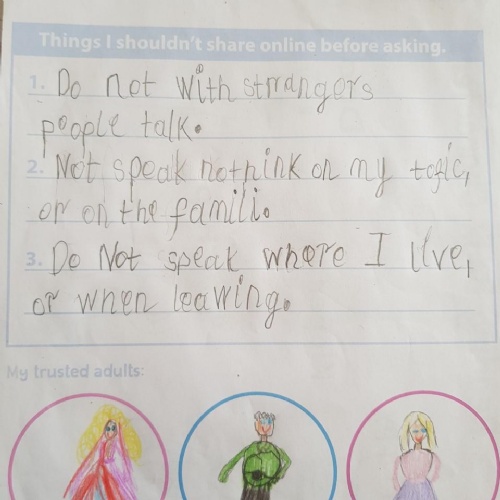 Things I shouldn't share online before asking.
1. Do not with strangors
people talk.
2. Not speak nothink on my togic,
or on the famili.
3. Do Not speak where I live,
or when leawing.
My trusted adults: